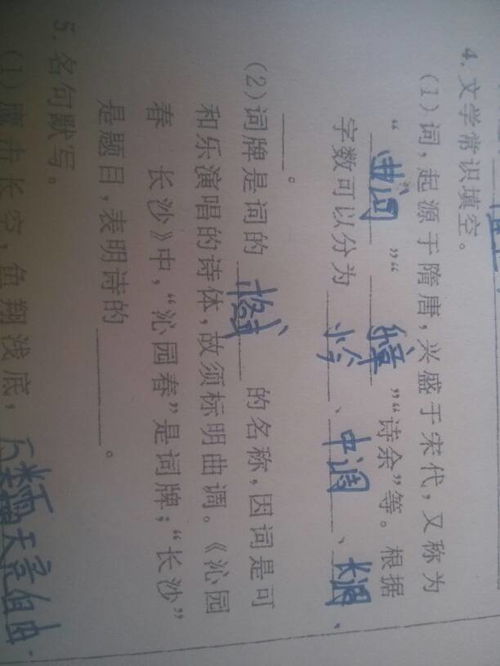 4. 文学常识填空。
(1)词,起源于隋唐,兴盛于宋代,又称为
“曲词”“ ”“诗余”等。根据
字数可以分为 小令 、 中调 、 长调 、
 。
(2)词牌是词的 格式 的名称,因词是可
和乐演唱的诗体,故须标明曲调。《沁园
春 长沙》中,“沁园春”是词牌;“长沙”
是题目,表明诗的 。
5. 名句默写。
(1)鹰击长空,鱼翔浅底,万类霜天竞自由